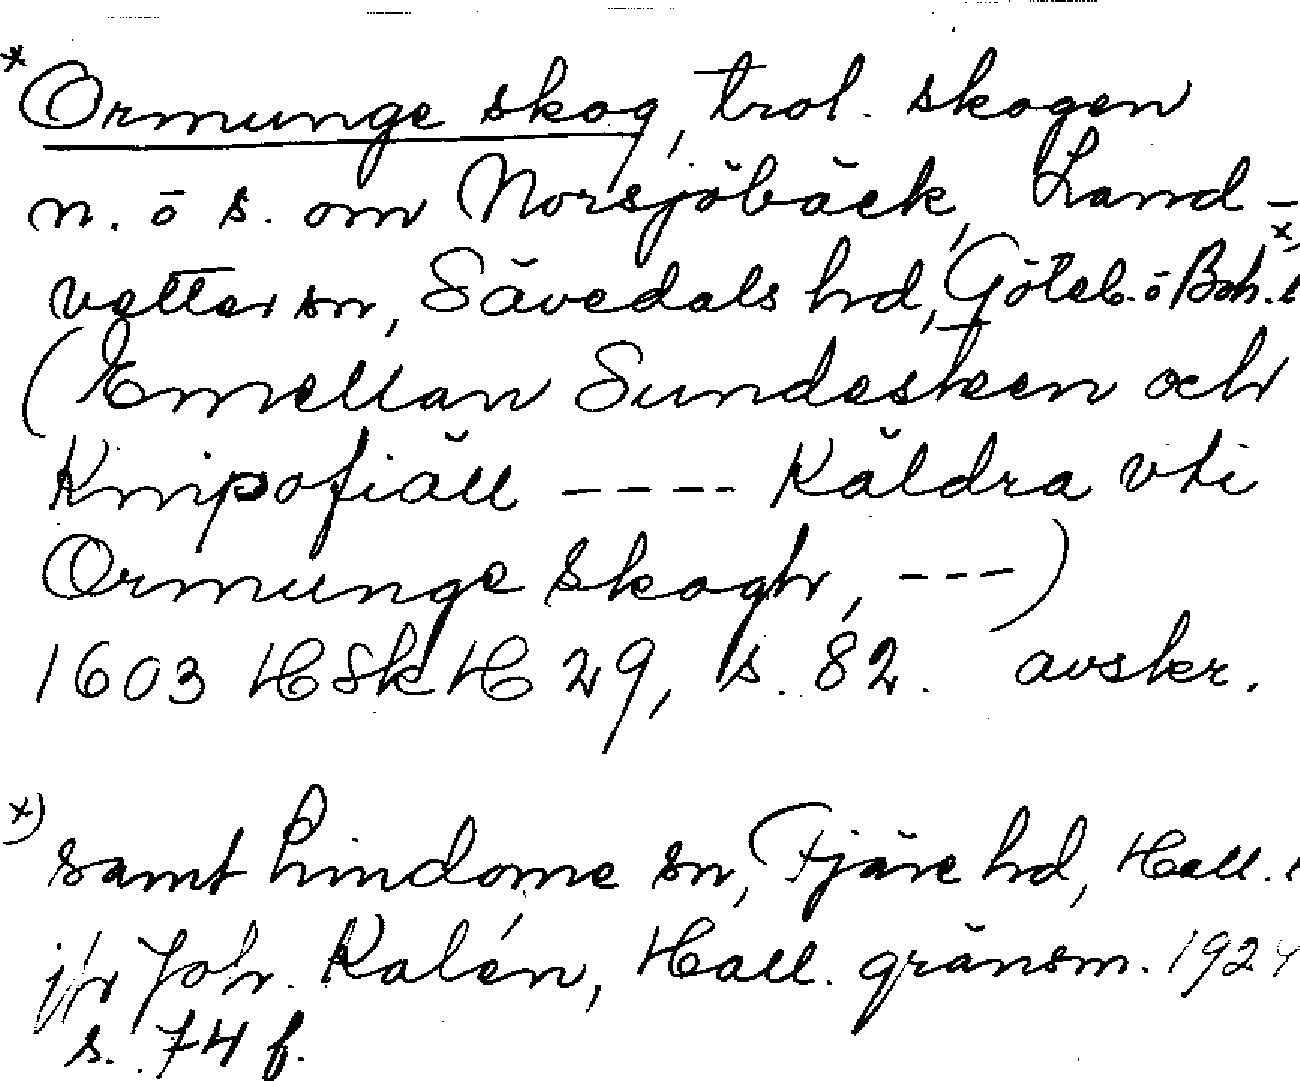 * Ormunge skog, trol. skogen
n. ö s. om Norsjöbäck, Land-
vetter sn, Sävedals hd, Göteb. ö Boh. l x)
(Emellan Sundesteen och
Knipofiäll ---- Käldra vti
Ormunge skogh, ---)
1603 HSkH 29, s. 82. avskr.
x) samt Lindome sn, Fjäre hd, Hall. l
jfr Joh. Kalén, Hall. gränsm. 1924
s. 74 f.